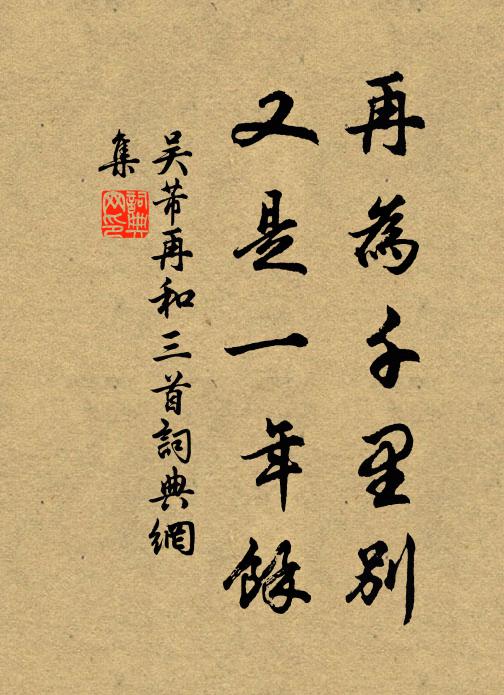 再為千里別
又是一年餘
吴芾再和三首詞典網
集
詞典
网印